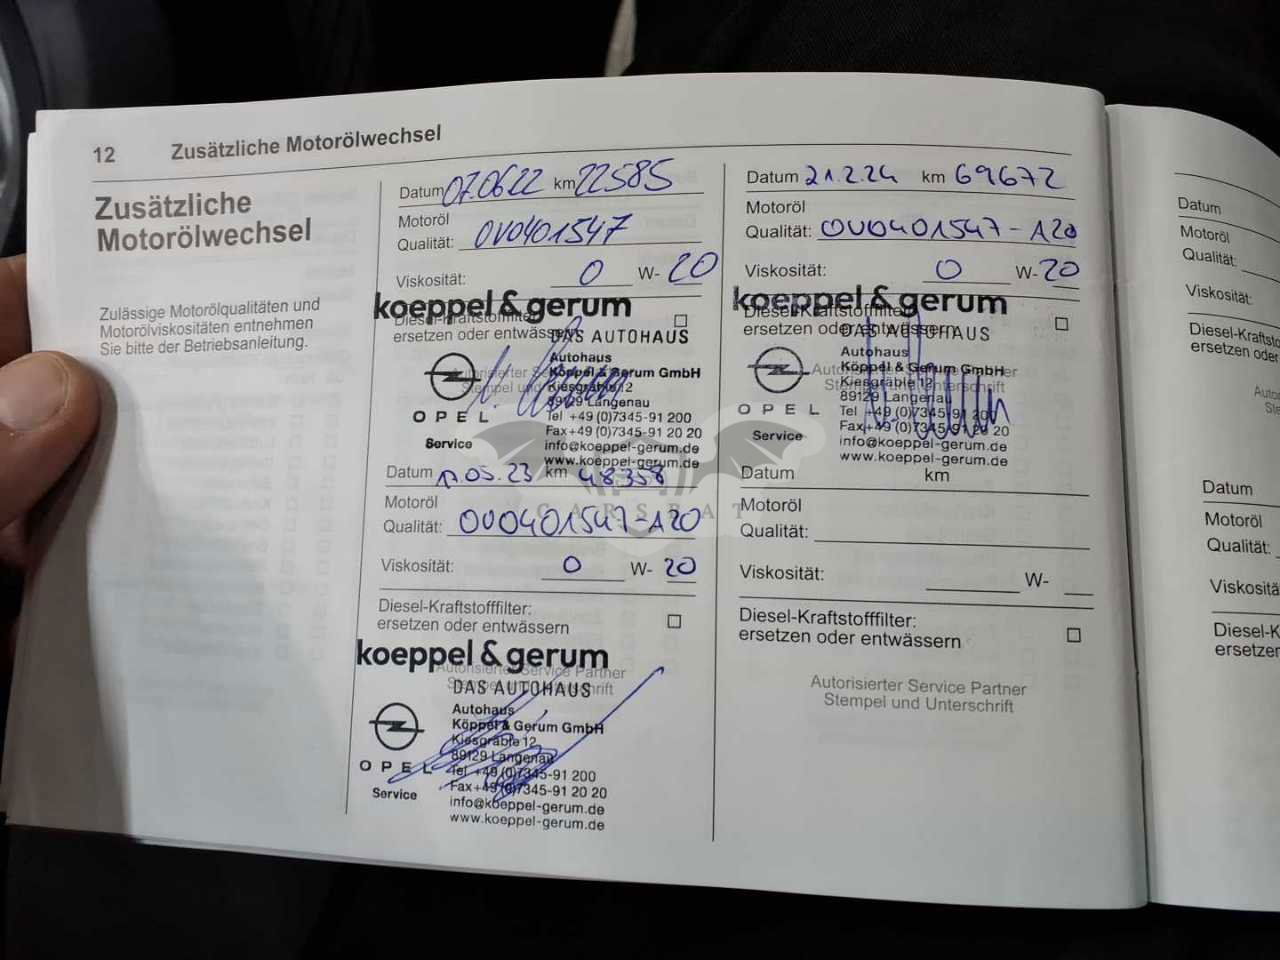 12 Zusätzliche Motorölwechsel
Zusätzliche
Motorölwechsel
Zulässige Motorölqualitäten und
Motorölviskositäten entnehmen
Sie bitte der Betriebsanleitung.
Datum 07.06.22 km 22585
Motoröl
Qualität: OV0401547
Viskosität: 0 W- 20
koeppel & gerum
Diesel-Kraftstofffilter:
ersetzen oder entwässern
DAS AUTOHAUS
Autohaus
Köppel & Gerum GmbH
Kiesgräble 12
89129 Langenau
Tel +49 (0)7345-91 200
Fax+49 (0)7345-91 20 20
info@koeppel-gerum.de
www.koeppel-gerum.de
OPEL
Service
Datum 17.05.23 km 48358
Motoröl
Qualität: OV0401547-A20
Viskosität: 0 W- 20
Diesel-Kraftstofffilter:
ersetzen oder entwässern
koeppel & gerum
Autorisierter Service Partner
DAS AUTOHAUS
Autohaus
Köppel & Gerum GmbH
Kiesgräble 12
89129 Langenau
Tel +49 (0)7345-91 200
Fax+49 (0)7345-91 20 20
info@koeppel-gerum.de
www.koeppel-gerum.de
OPEL
Service
Datum 21.2.24 km 69672
Motoröl
Qualität: OV0401547-A20
Viskosität: 0 W- 20
koeppel & gerum
Diesel-Kraftstofffilter:
ersetzen oder entwässern
DAS AUTOHAUS
Autohaus
Köppel & Gerum GmbH
Kiesgräble 12
89129 Langenau
Tel +49 (0)7345-91 200
Fax+49 (0)7345-91 20 20
info@koeppel-gerum.de
www.koeppel-gerum.de
OPEL
Service
Datum km
Motoröl
Qualität:
Viskosität: W-
Diesel-Kraftstofffilter:
ersetzen oder entwässern
Autorisierter Service Partner
Stempel und Unterschrift
CARSBAT
Datum
Motoröl
Qualität:
Viskosität:
ersetzen oder
Datum
Motoröl
Qualität:
ersetzen